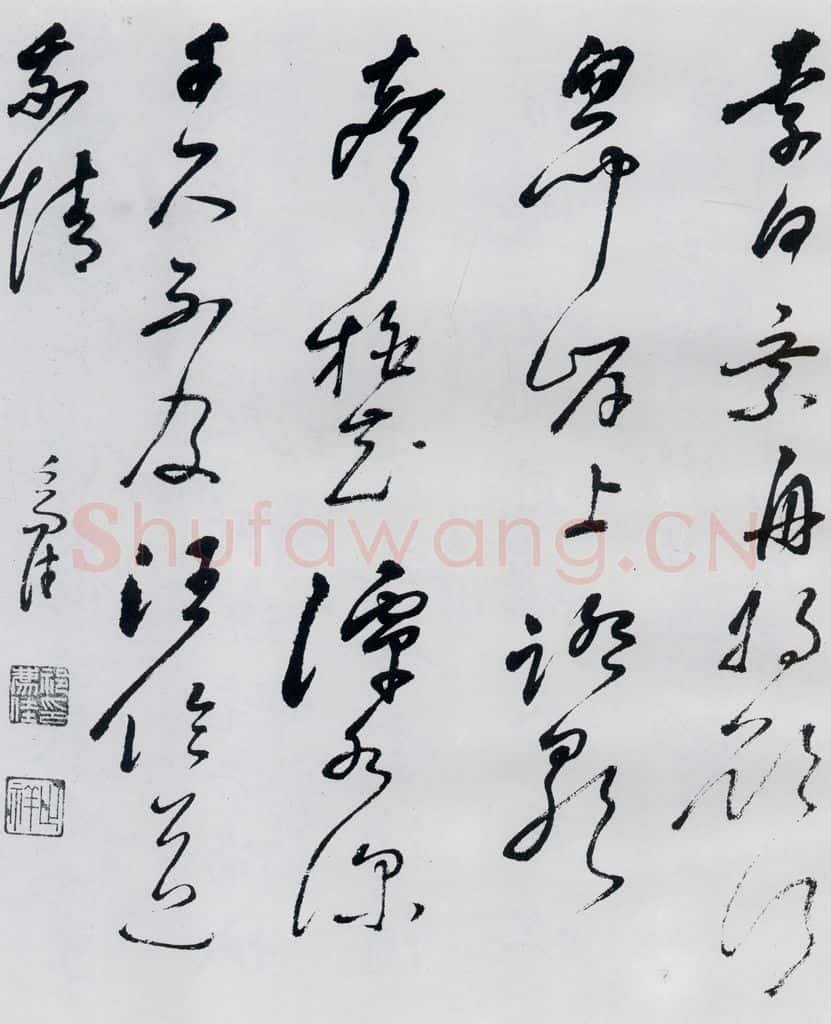 李白乘舟將欲行
忽聞岸上踏歌
聲桃花潭水深
千尺不及汪倫送
我情
豸佳
祁豸佳印
止祥
Shufawang.CN